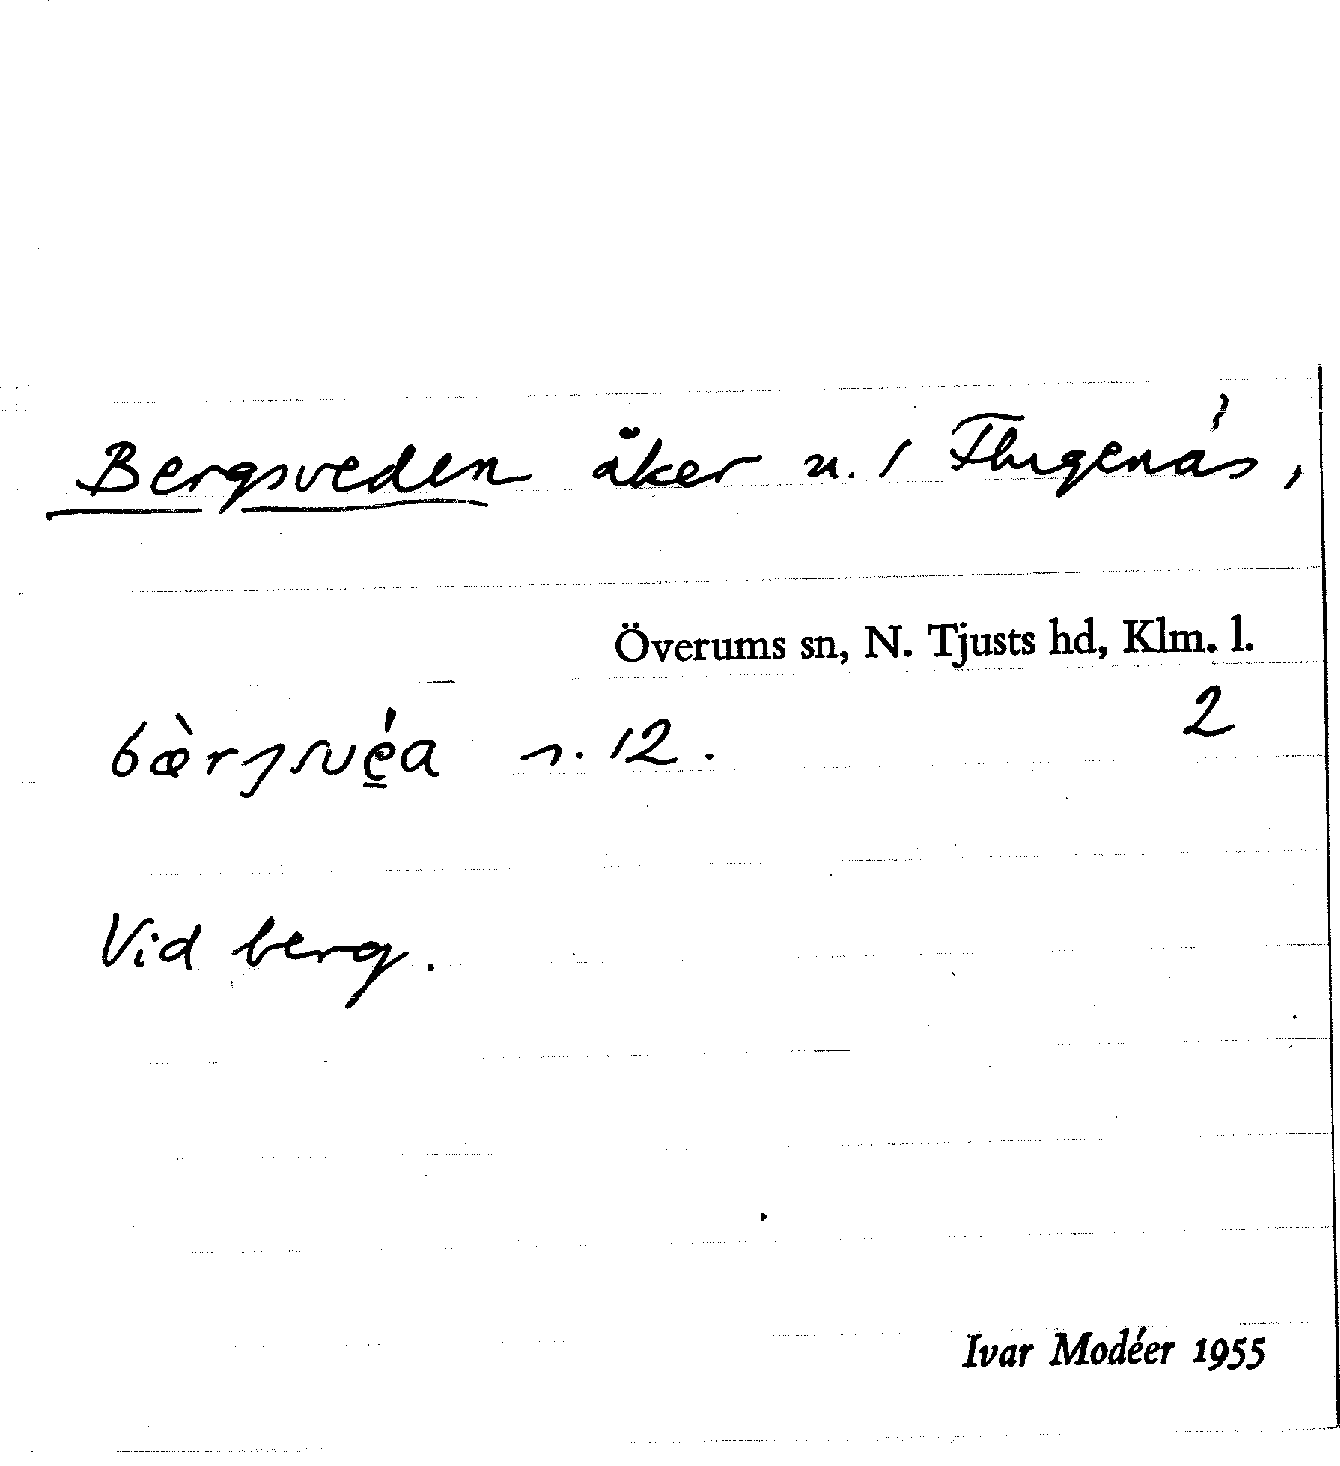 Bergsveden åker n. 1 Flugenäs,
Överums sn, N. Tjusts hd, Klm. l.
2
n. 12.
Vid berg.
Ivar Modéer 1955